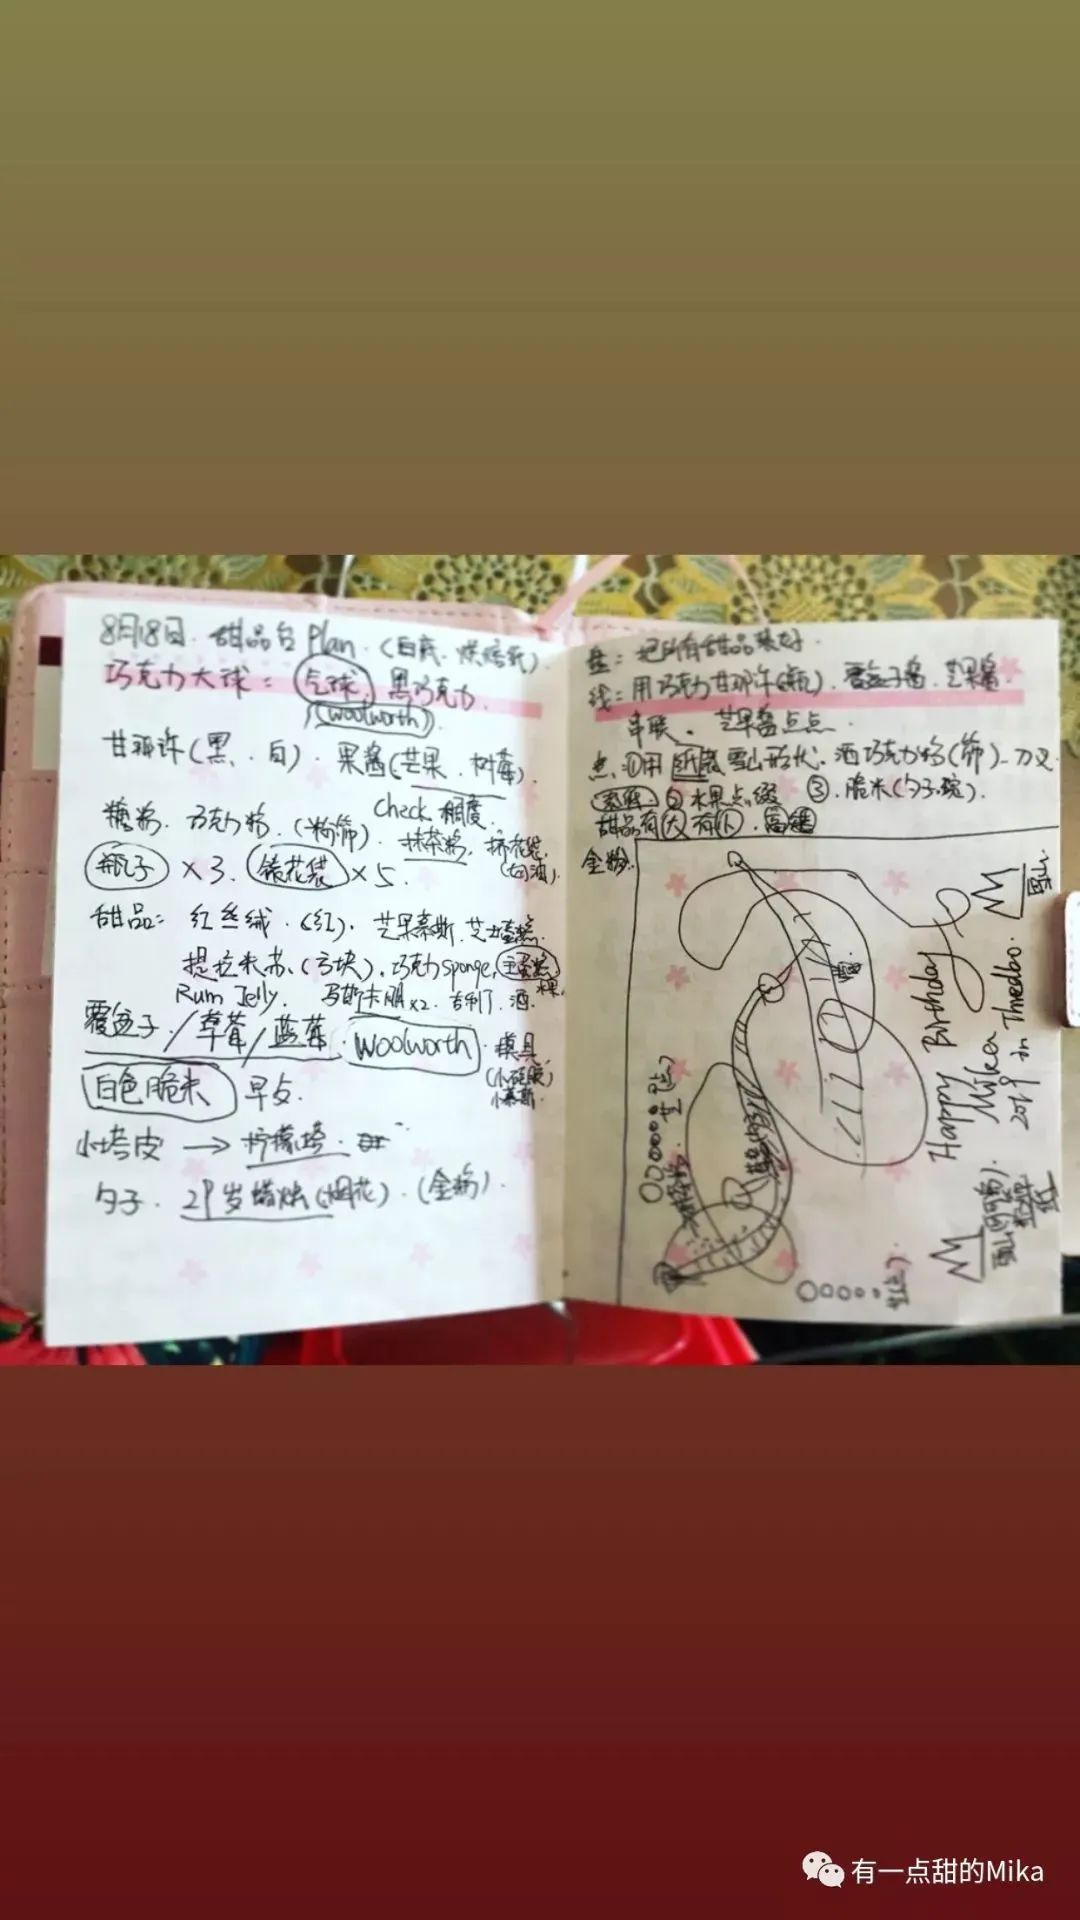 8月18日. 甜品台 Plan. (白底. 烘焙纸).
巧克力大球: 气球. 黑巧克力.
(woolworth).
甘那许(黑、白). 果酱(芒果. 树莓).
check 稠度.
糖粉. 巧克力粉. (粉筛). 抹茶粉. 挤花袋.
(奶油).
瓶子 ×3. 裱花袋 ×5.
甜品: 红丝绒. (红). 芒果慕斯. 芝士蛋糕.
提拉米苏. (方块). 巧克力sponge,
Rum Jelly. 马斯卡朋×2. 吉利丁. 酒.
覆盆子/草莓/蓝莓. Woolworth. 模具
小慕斯.
白色脆米 早点.
小塔皮 → 柠檬塔.
勺子. 29岁蜡烛(烟花). (金粉).
盘: 把所有甜品装好.
线: 用巧克力甘那许(瓶). 覆盆子酱. 芒果酱.
串联. 芒果酱点点.
点. ①用纸 雪山形状. 洒巧克力粉(筛). 刀叉
②水果点缀 ③. 脆米(勺子.碗).
甜品有大有小.
金粉.
雪山
Happy Birthday
Mika
2019 in Thredbo.
雪山